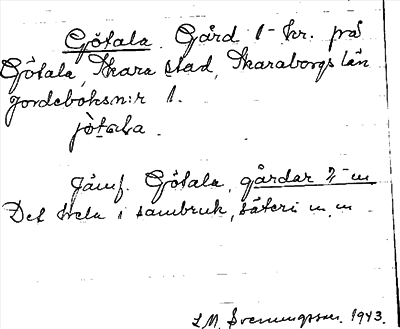 Götala. Gård 1 - kr. på
Götala, Skara stad, Skaraborgs län
Jordeboksn:r 1.
jö̀tala.
Jämf. Götala, gårdar 2 - m
Det hela i sambruk, säteri m. m.
L. M. Svenungsson. 1943.